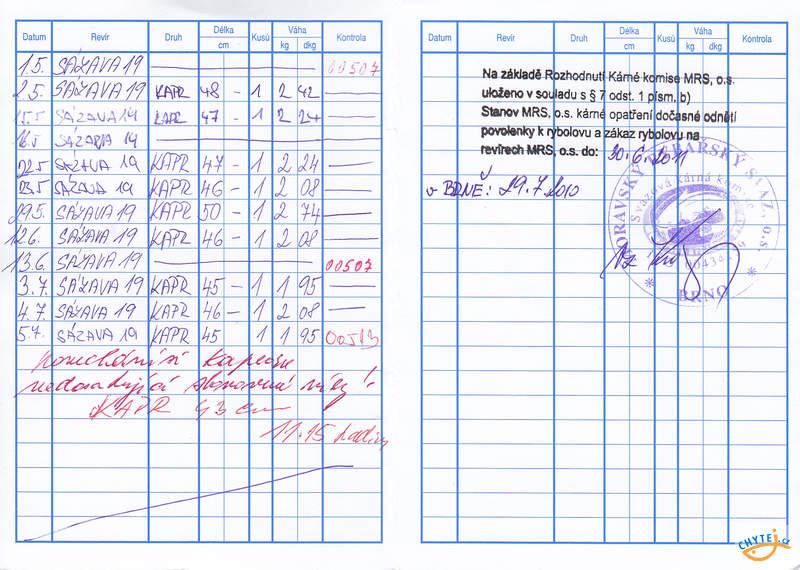 Datum Revír Druh Délka cm Kusů Váha kg dkg Kontrola
1.5. SÁZAVA 19 00507
2.5. SÁZAVA 19 KAPR 48 - 1 2 42
15.5 SÁZAVA 19 KAPR 47 - 1 2 24
16.5 SÁZAVA 19
22.5 SÁZAVA 19 KAPR 47 - 1 2 24
23.5 SÁZAVA 19 KAPR 46 - 1 2 08
29.5. SÁZAVA 19 KAPR 50 - 1 2 74
12.6. SÁZAVA 19 KAPR 46 - 1 2 08
13.6. SÁZAVA 19 00507
3.7. SÁZAVA 19 KAPR 45 - 1 1 95
4.7. SÁZAVA 19 KAPR 46 - 1 2 08
5.7. SÁZAVA 19 KAPR 45 1 1 95 00513
kapra
nedosahující míry!
KAPR 43 cm
11.15 hodin
Datum Revír Druh Délka cm Kusů Váha kg dkg Kontrola
Na základě Rozhodnutí Kárné komise MRS, o.s.
uloženo v souladu s § 7 odst. 1 písm. b)
Stanov MRS, o.s. kárné opatření dočasné odnětí
povolenky k rybolovu a zákaz rybolovu na
revírech MRS, o.s. do: 30.6.2011
v BRNĚ: 29.7.2010
MORAVSKÝ RYBÁŘSKÝ SVAZ, o.s.
BRNO
CHYTEJ.cz